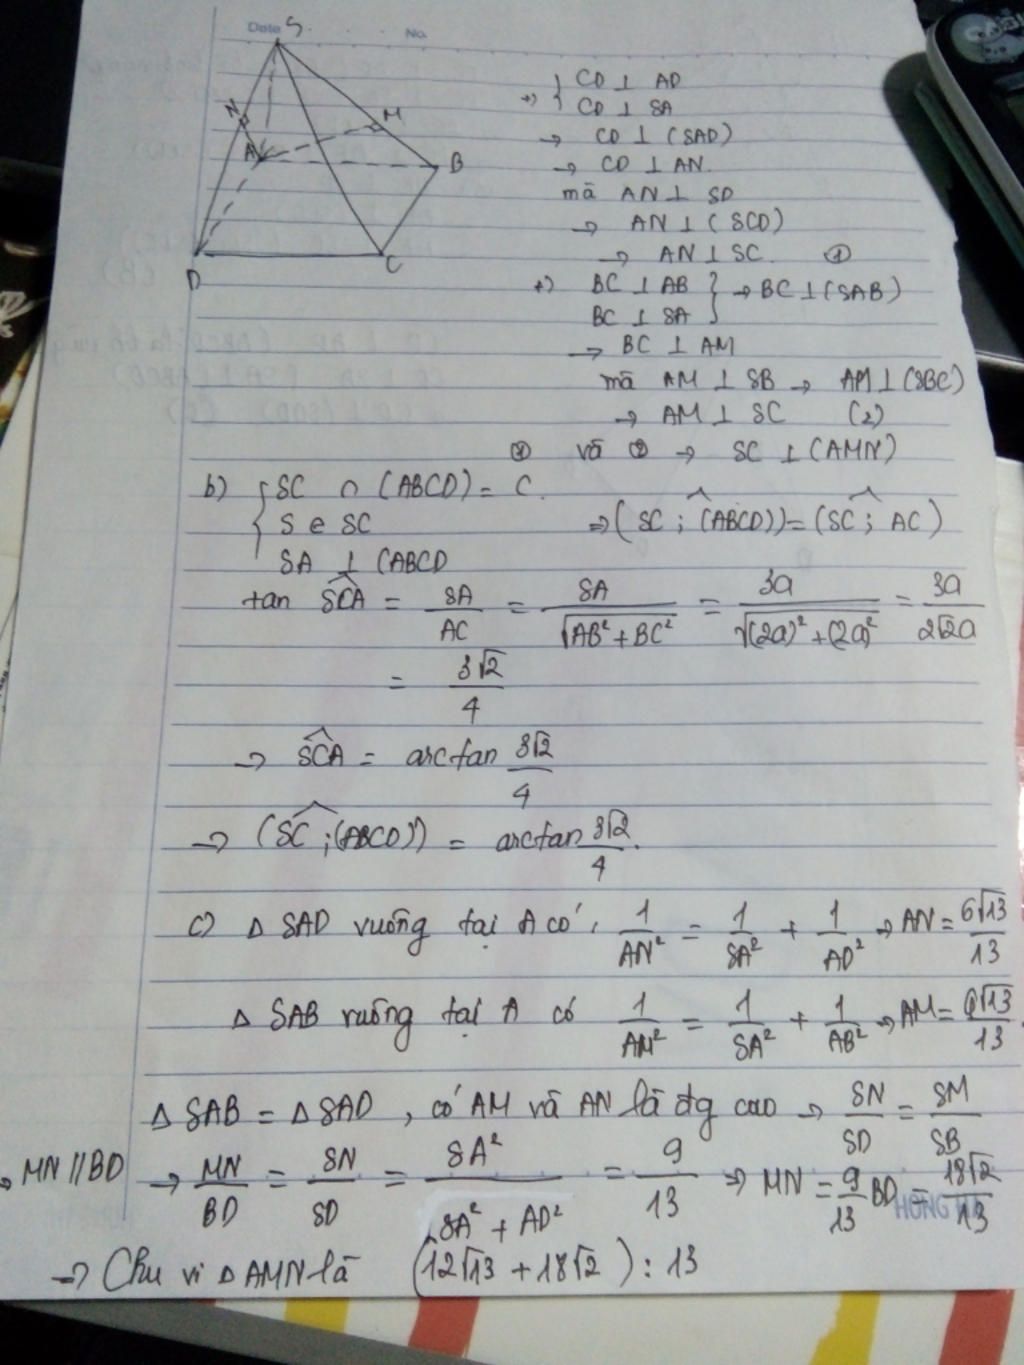 Date No.
S.
N
M
A
B
D
C
+) { CD ⊥ AD
CD ⊥ SA
→ CD ⊥ (SAD)
→ CD ⊥ AN.
mà AN ⊥ SD
→ AN ⊥ (SCD)
→ AN ⊥ SC. ①
+) BC ⊥ AB } → BC ⊥ (SAB)
BC ⊥ SA
→ BC ⊥ AM
mà AM ⊥ SB → AM ⊥ (SBC)
→ AM ⊥ SC (2)
① và ② → SC ⊥ (AMN)
b) { SC ∩ (ABCD) = C.
S ∈ SC ⇒ (SC; (ABCD)) = (SC; AC)
SA ⊥ (ABCD
tan SCA = SA/AC = SA/√(AB² + BC²) = 3a/√((2a)² + (2a)²) = 3a/2√2a
= 3√2/4
→ SCA = arctan 3√2/4
→ (SC; (ABCD)) = arctan 3√2/4.
c) Δ SAD vuông tại A có, 1/AN² = 1/SA² + 1/AD² → AN = 6√13/13
Δ SAB vuông tại A có 1/AM² = 1/SA² + 1/AB² → AM = 6√13/13.
Δ SAB = Δ SAD, có AM và AN là đg cao → SN/SD = SM/SB
→ MN // BD → MN/BD = SN/SD = SA²/(SA² + AD²) = 9/13 → MN = 9/13 BD = 18√2/13
→ Chu vi Δ AMN là (12√13 + 18√2) : 13